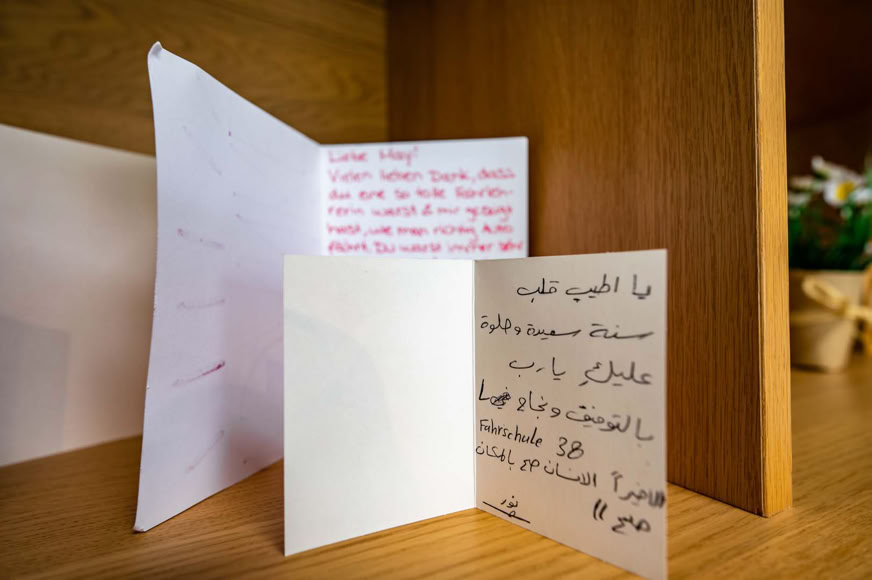 Liebe May!
Vielen lieben Dank, dass
du eine so tolle Fahrleh-
rerin warst & mir gezeigt
hast, wie man richtig Auto
fährt. Du warst immer sehr
يا اطيب قلب
سنة سعيدة وحلوة
عليكِ يارب
بالتوفيق ونجاح
Fahrschule 38
الانسان صح بالمكان
صح !!
نور